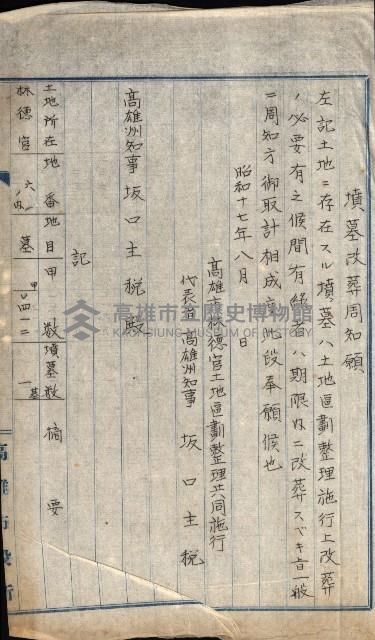 墳墓改葬周知願
左記土地ニ存在スル墳墓ハ土地區劃整理施行上改葬
ノ必要有之候間有緣者ハ期限內ニ改葬スベキ旨一般
ニ周知方御取計相成度此段奉願候也
昭和十七年八月　日
高雄市林德官土地區劃整理共同施行
代表者　高雄州知事　坂口主稅
高雄州知事　坂口主稅殿
記
土地所在地　番　地目　甲數　墳墓數　摘要
林德官　墓　甲　〇四一二　一基
高雄市役所
高雄市立歷史博物館
KAOHSIUNG MUSEUM OF HISTORY